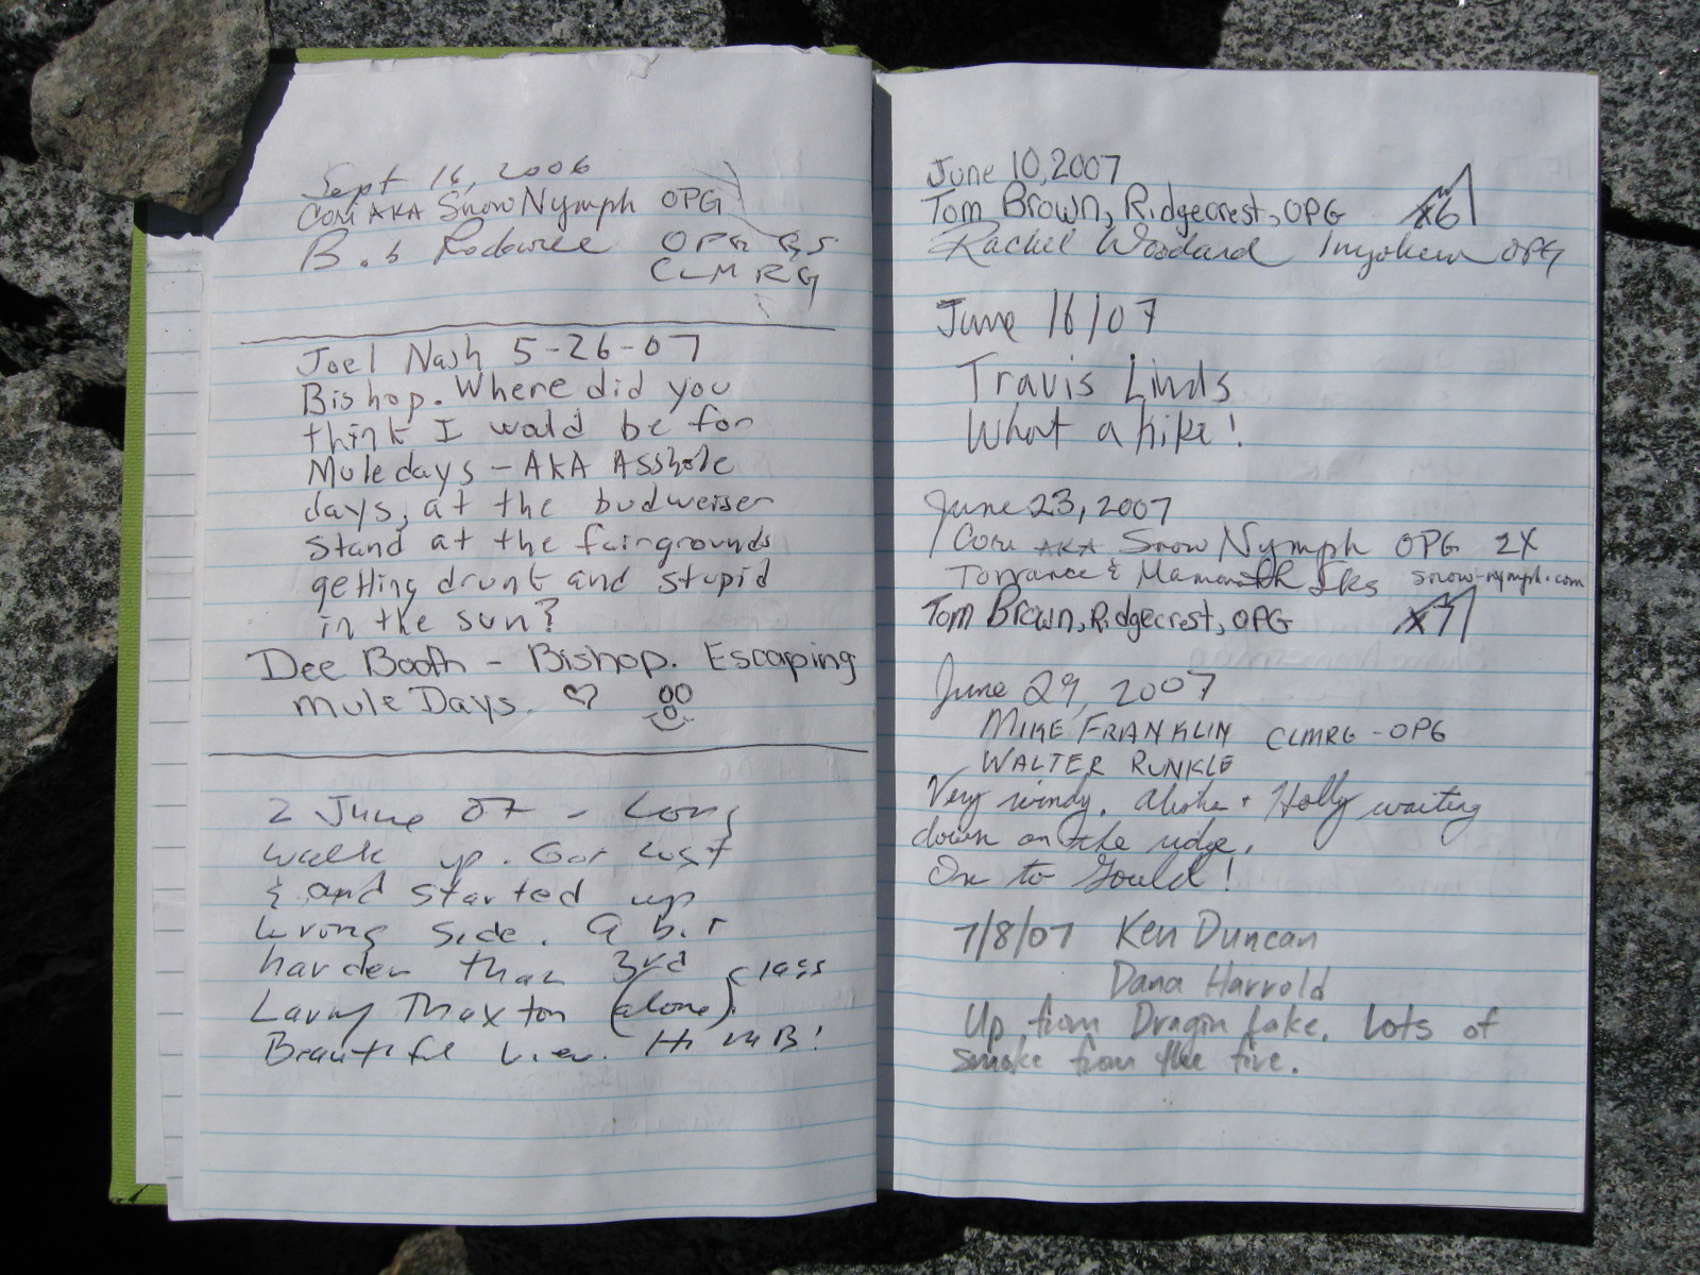 Sept 16, 2006
Cori AKA SnowNymph OPG
Bob OPG
CLMRG
Joel Nash 5-26-07
Bishop. Where did you
think I would be for
Mule days - AKA Asshole
days, at the budweiser
stand at the fairgrounds
getting drunk and stupid
in the sun?
Dee Booth - Bishop. Escaping
Mule Days. ♡
2 June 07 - Long
walk up. Got lost
& and started up
wrong side. A bit
harder than 3rd class
Larry Thaxton (alone).
Beautiful view. Hi MB!
June 10, 2007
Tom Brown, Ridgecrest, OPG x6
Rachel Woodard Inyokern OPG
June 16/07
Travis Linds
What a hike!
June 23, 2007
Cori AKA SnowNymph OPG 2X
Torrance & Mammoth Lks snow-nymph.com
Tom Brown, Ridgecrest, OPG x7
June 29, 2007
MIKE FRANKLIN CLMRG - OPG
WALTER RUNKLE
Very windy. + Holly waiting
down on the ridge.
On to Gould!
7/8/07 Ken Duncan
Dana Harrold
Up from Dragon Lake. Lots of
smoke from the fire.